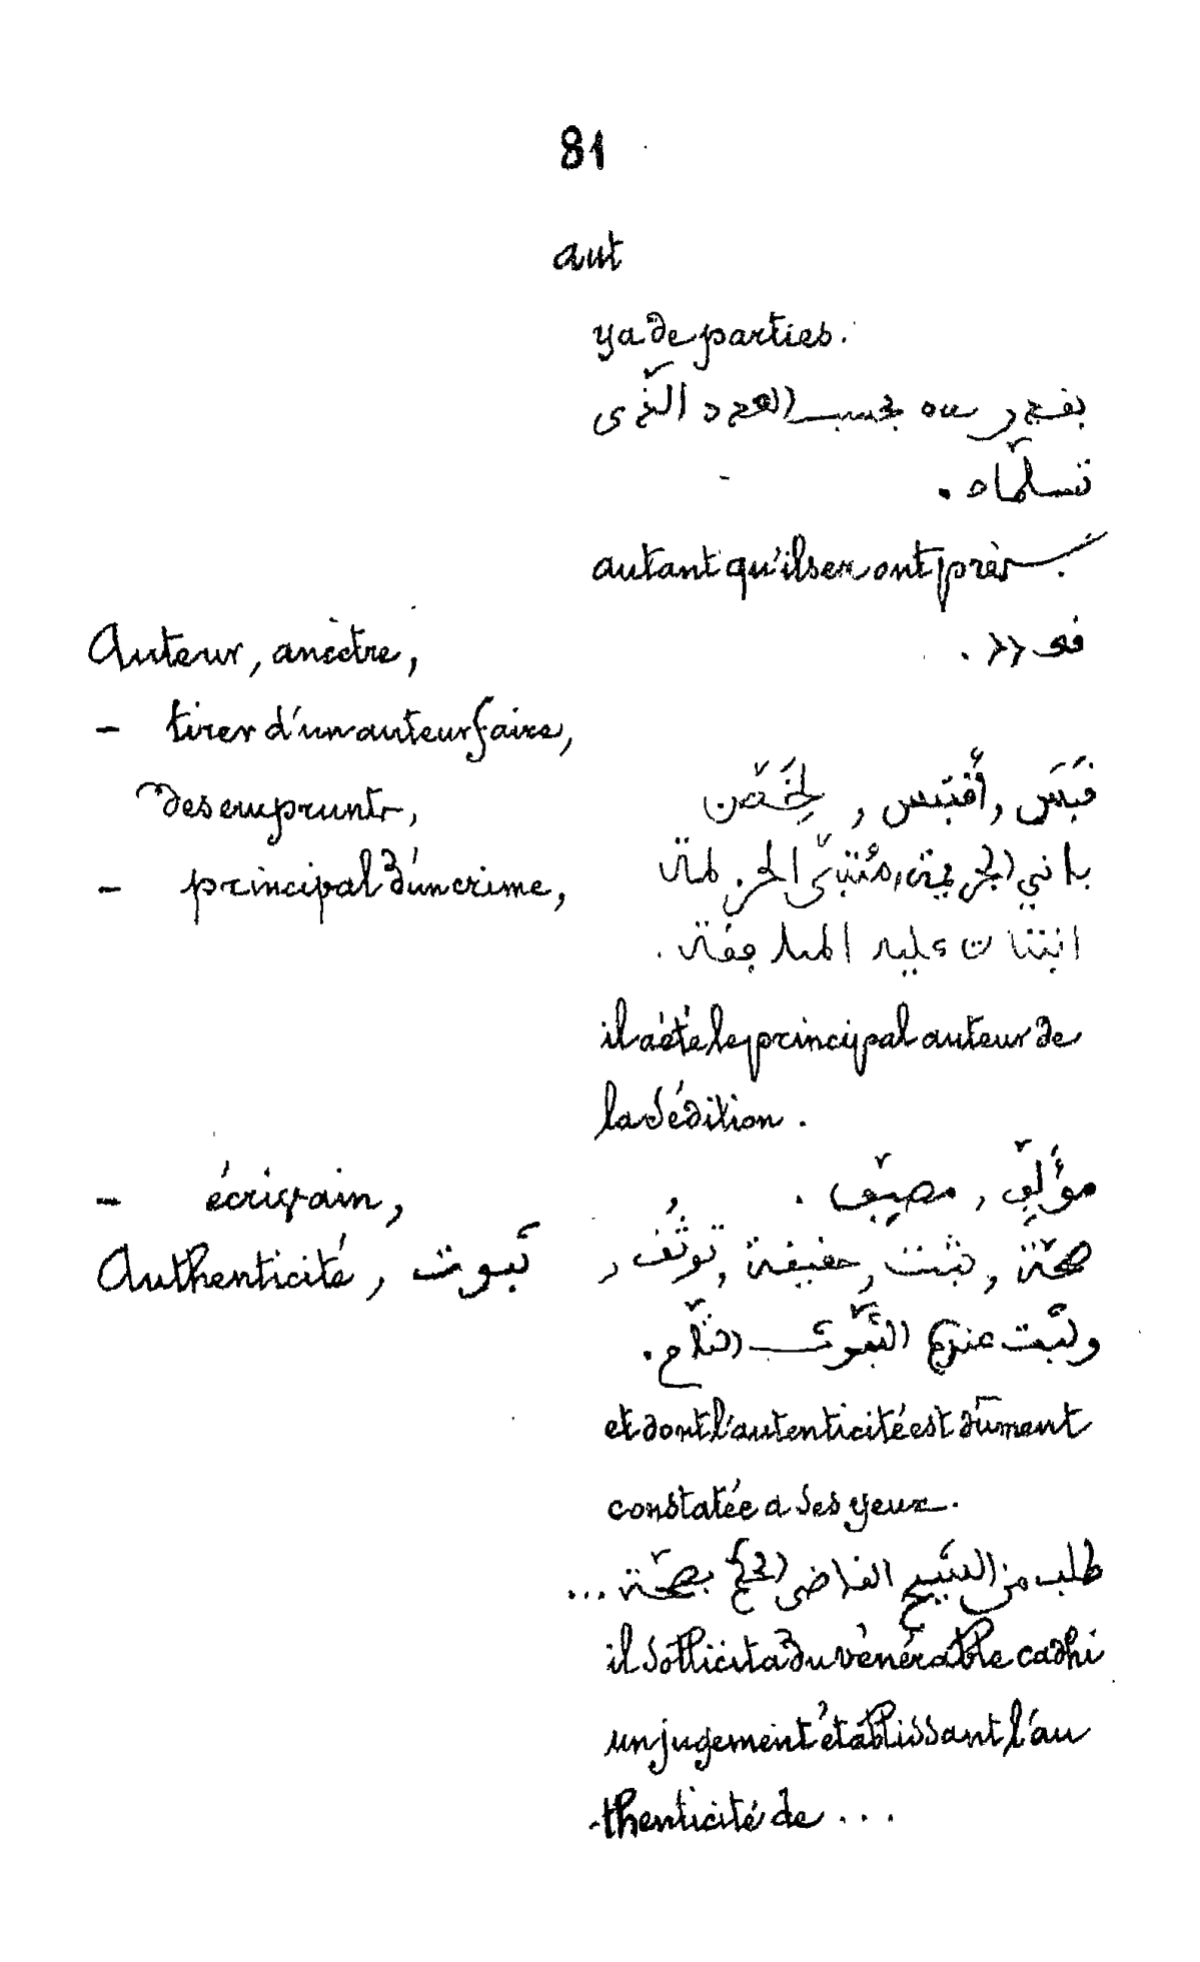 81
aut
ya de parties.
بقدر سه بحسب العدد الذى
تسلماه .
autant qu'ils en ont près
Auteur, ancêtre,
قد .
– tirer d'un auteur faire,
des emprunts,
قبس , أقتبس , لخص من
– principal d'un crime,
باني الجريمة,
عليه
il a été le principal auteur de
la sédition.
– écrivain,
مؤلف , مصنف .
Authenticité, ثبوت
صحة , تثبت , حقيقة , توثق ,
وثبت عنده الثبوت التام .
et dont l'autenticité est dûment
constatée a ses yeux.
طلب من الشيخ القاضى الحكم بصحة ...
il sollicita du vénérable cadhi
un jugement établissant l'au
-thenticité de ...